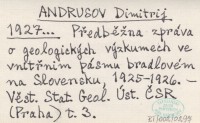 ANDRUSOV Dimitrij
1927... Předběžna zpráva
o geologických výzkumech ve
vnitřním pásmu bradlovém
na Slovensku 1925-1926. –
Věst. Stat. Geol. Úst. ČSR
(Praha) t. 3.